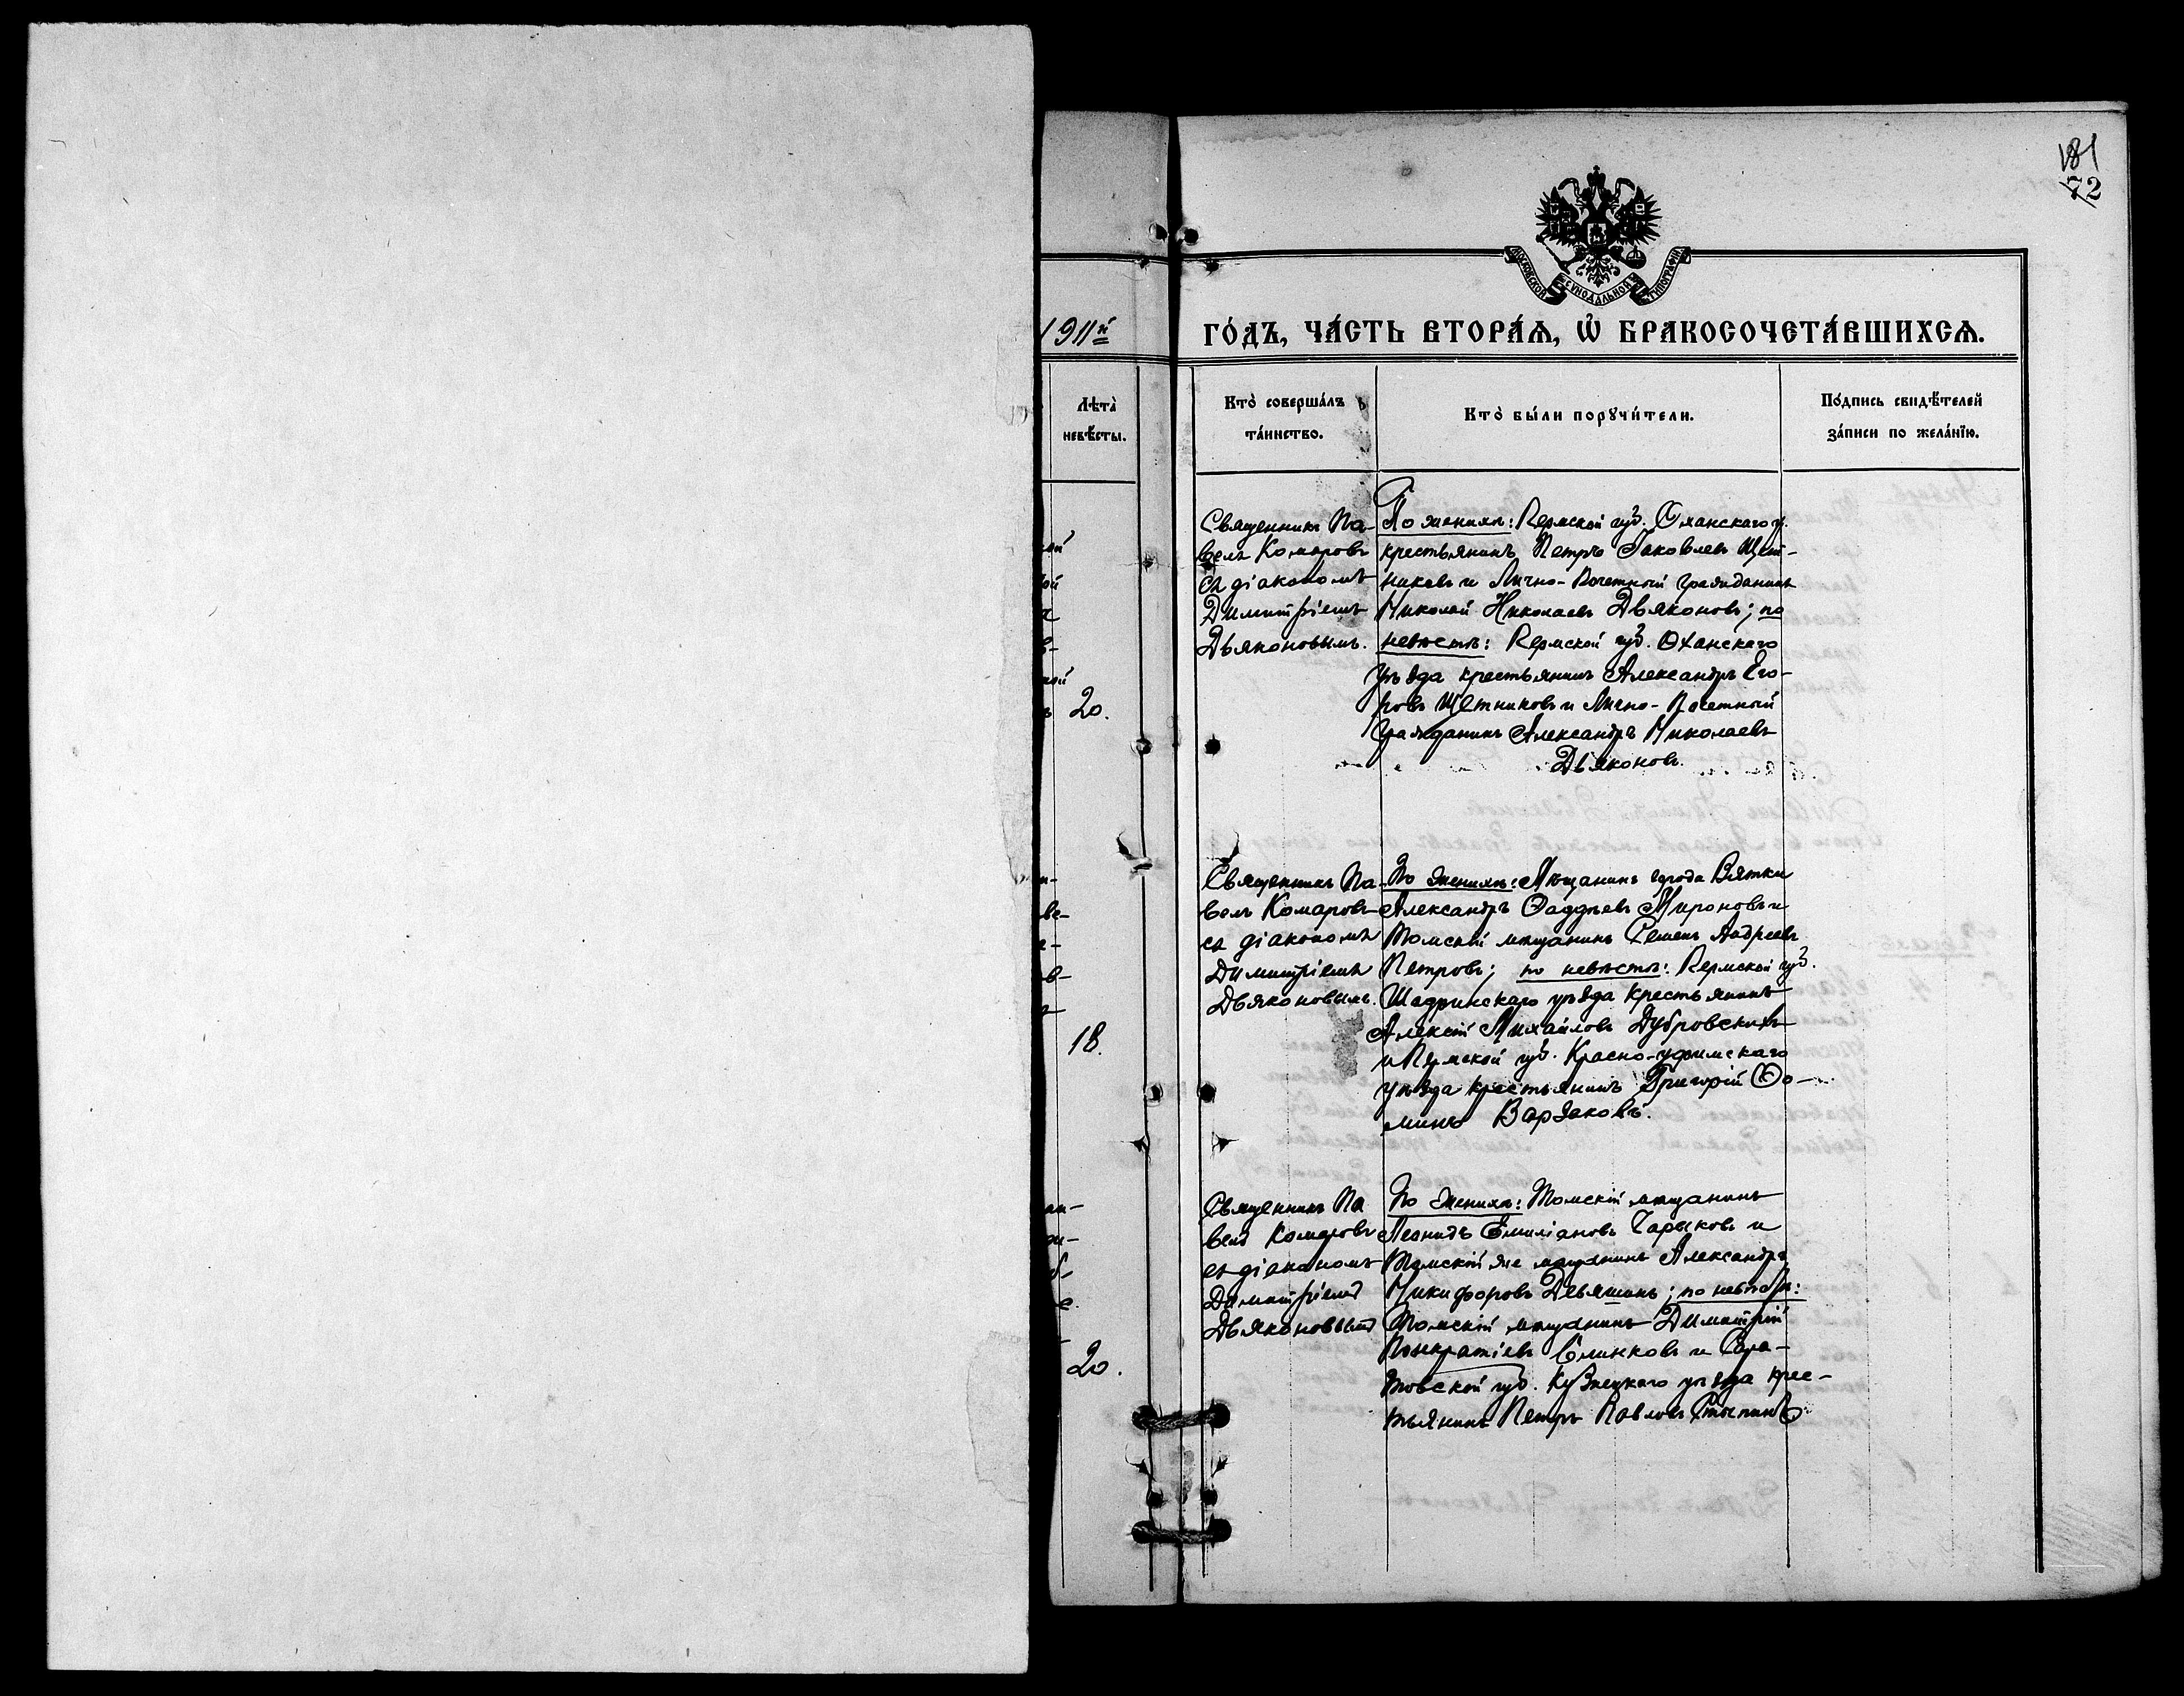 181
72
МОСКОВСКОЙ СѴНОДАЛЬНОЙ ТИПОГРАФІИ
1911й
ГО́ДЪ, ЧА́СТЬ ВТОРА́Ѧ, Ѽ БРАКОСОЧЕТА́ВШИХСѦ.
Лѣта̀
невѣ́сты.
Кто̀ соверша́лъ
та́инство.
Кто̀ бы́ли порꙋчи́тели.
По́дпись свидѣ́телей
за́писи по жела́нїю.
20.
Священникъ Па-
велъ Комаровъ
съ діакономъ
Димитріемъ
Дьяконовымъ.
По женихѣ: Пермской губ. Оханскаго у.
крестьянинъ Петръ Іаковлевъ Щет-
никовъ и Лично-Почетный гражданинъ
Николай Николаевъ Дьяконовъ; по
невѣстѣ: Пермской губ. Оханскаго
уѣзда крестьянинъ Александръ Его-
ровъ Щетниковъ и Лично-Почетный
гражданинъ Александръ Николаевъ
Дьяконовъ.
18.
Священникъ Па-
велъ Комаровъ
съ діакономъ
Димитріемъ
Дьяконовымъ.
По женихѣ: Мѣщанинъ города Вятки
Александръ Ѳаддѣевъ Мироновъ и
Томскій мѣщанинъ Семенъ Андреевъ
Петровъ; по невѣстѣ: Пермской губ.
Шадринскаго уѣзда крестьянинъ
Алексій Михайловъ Дубровскихъ
и Пермской губ. Красно-уфимскаго
уѣзда крестьянинъ Григорій Ѳо-
минъ Варзаковъ.
20.
Священникъ Па
велъ Комаровъ
съ діакономъ
Димитріемъ
Дьяконовымъ
По женихѣ: Томскій мѣщанинъ
Леонидъ Емиліановъ Чарыковъ и
Томскій же мѣщанинъ Александръ
Никифоровъ Девяшинъ; по невѣстѣ:
Томскій мѣщанинъ Димитрій
Понкратіевъ Слинковъ и Сара-
товской губ. Кузнецкаго уѣзда крес-
тьянинъ Петръ Павловъ Стыпинъ